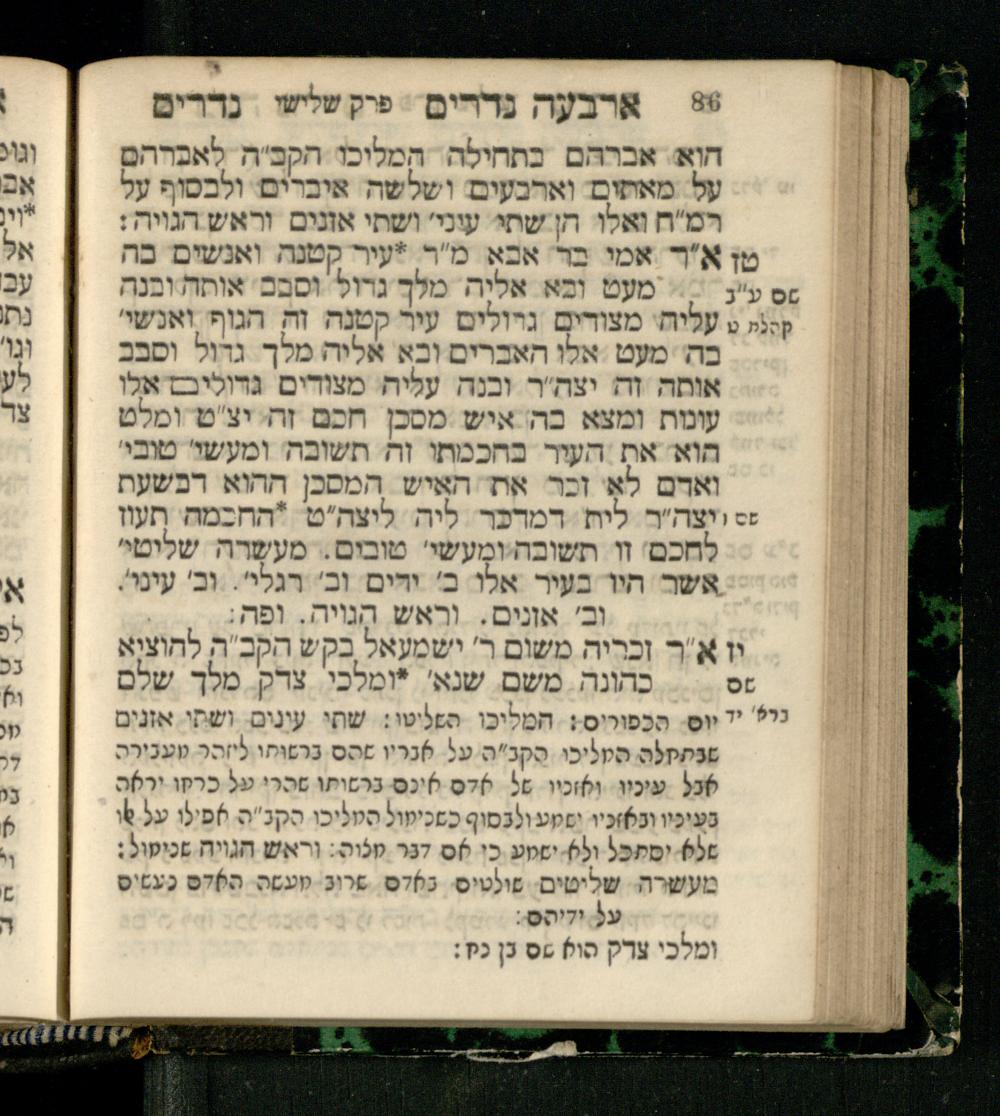 86 ארבעה נדרים פרק שלישי נדרים
הוא אברהם בתחילה המליכו הקב״ה לאברהם
על מאתים וארבעים ושלשה איברים ולבסוף על
רמ״ח ואלו הן שתי עיני׳ ושתי אזנים וראש הגויה:
טז א״ר אמי בר אבא מ״ד *עיר קטנה ואנשים בה
שם ע״ב מעט ובא אליה מלך גדול וסבב אותה ובנה
קהלת ט עליה מצודים גדולים עיר קטנה זה הגוף ואנשי׳
בה מעט אלו האברים ובא אליה מלך גדול וסבב
אותה זה יצה״ר ובנה עליה מצודים גדולים אלו
עונות ומצא בה איש מסכן חכם זה יצ״ט ומלט
הוא את העיר בחכמתו זה תשובה ומעשי׳ טובי׳
ואדם לא זכר את האיש המסכן ההוא דבשעת
שם ז יצה״ר לית דמדכר ליה ליצה״ט *החכמה תעוז
לחכם זו תשובה ומעשי׳ טובים. מעשרה שליטי׳
אשר היו בעיר אלו ב׳ ידים וב׳ רגלי׳. וב׳ עיני׳.
וב׳ אזנים. וראש הגויה. ופה:
יז א״ר זכריה משום ר׳ ישמעאל בקש הקב״ה להוציא
שם כהונה משם שנא׳ *ומלכי צדק מלך שלם
ברא׳ יד יום הכפורים: המליכו השליטו: שתי עינים ושתי אזנים
שבתחלה המליכו הקב״ה על אבריו שהם ברשותו ליזהר מעבירה
אבל עיניו ואזניו של אדם אינם ברשותו שהרי על כרחו יראה
בעיניו ובאזניו ישמע ולבסוף כשנימול המליכו הקב״ה אפילו על אלו
שלא יסתכל ולא ישמע כי אם דבר מצוה: וראש הגויה שנימול:
מעשרה שליטים שולטים באדם שרוב מעשה האדם נעשים
על ידיהם:
ומלכי צדק הוא שם בן נח: